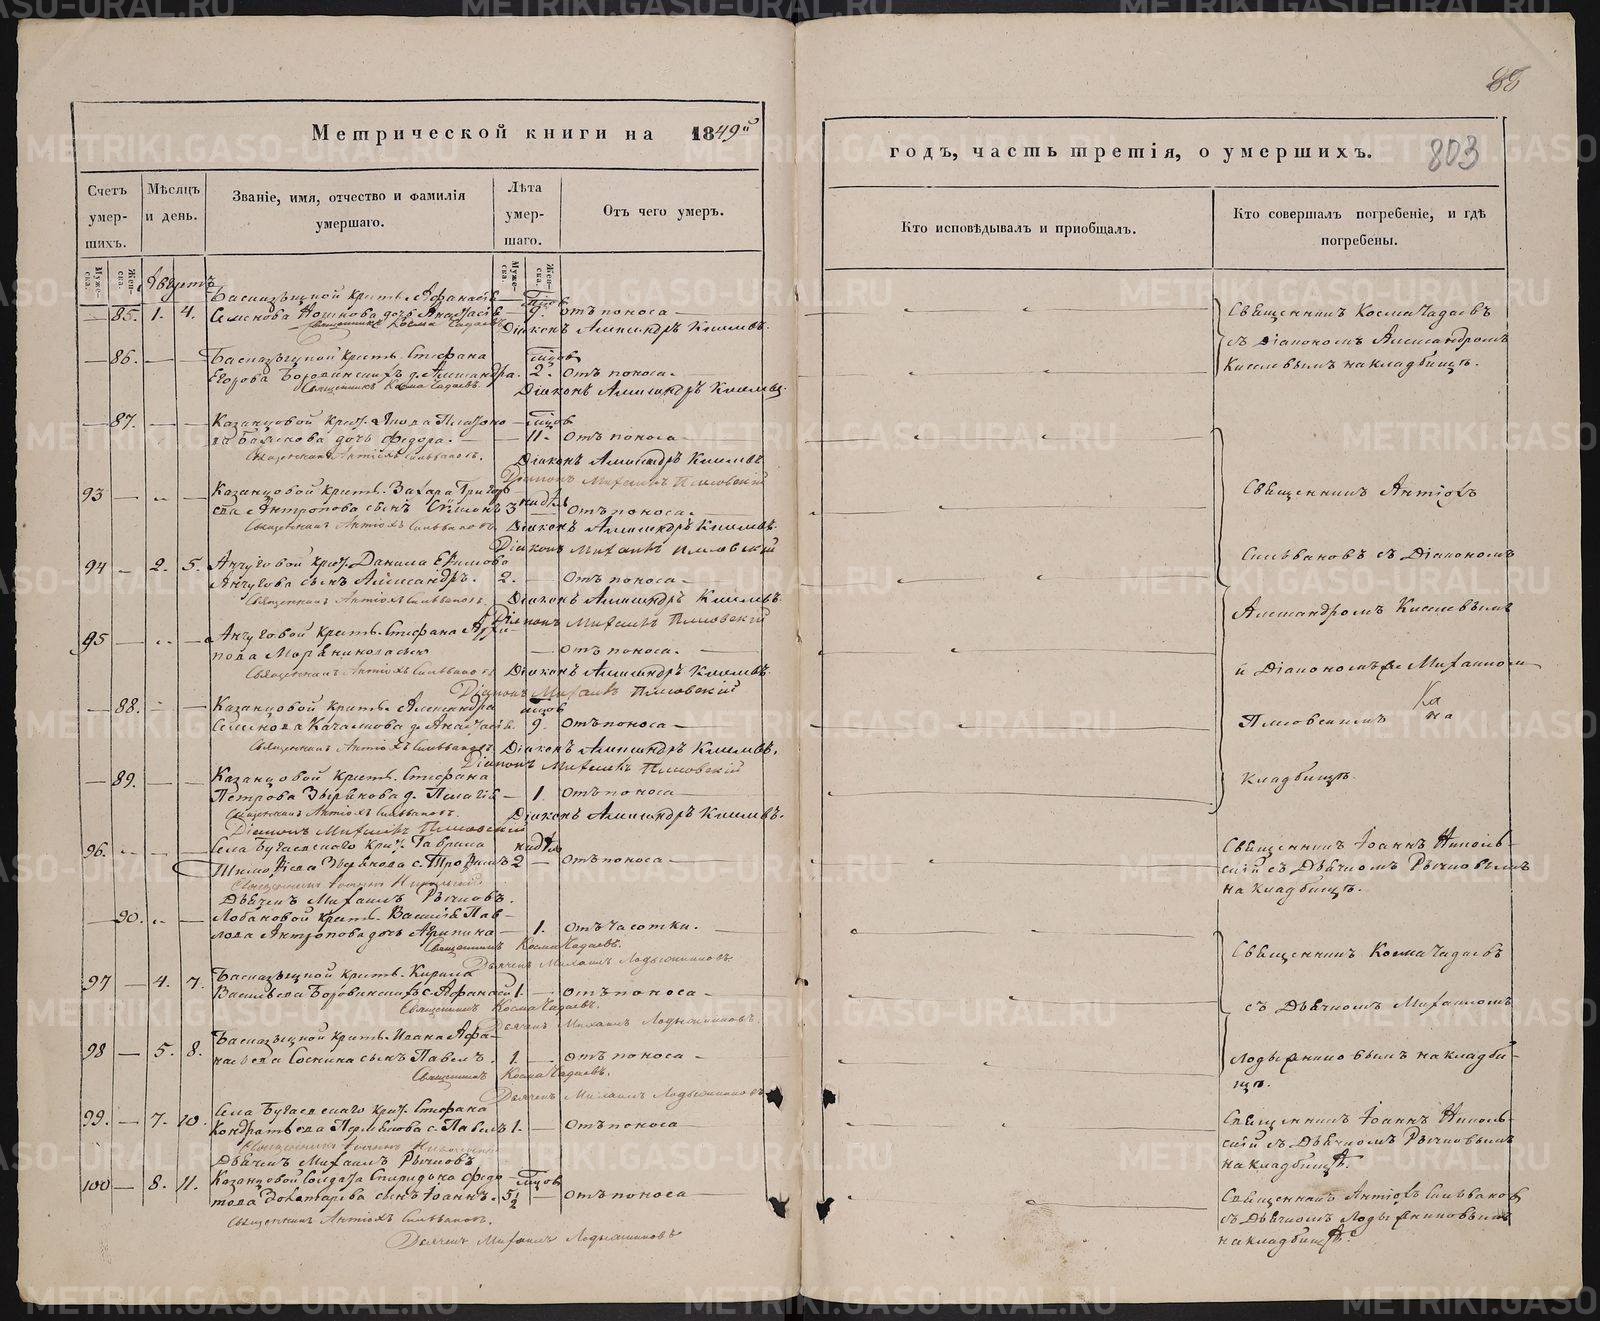 85
Метрической книги на 1849й
годъ, часть третія, о умершихъ. 803
Счетъ умер- шихъ.
Мѣсяцъ и день.
Званіе, имя, отчество и фамилія умершаго.
Лѣта умер- шаго.
Отъ чего умеръ.
Кто исповѣдывалъ и приобщалъ.
Кто совершалъ погребеніе, и гдѣ погребены.
Муже- ска. Жен- ска. Муже- ска. Жен- ска.
Августъ
крест. Афанасія мѣсяцов
85. 1. 4. Семенова дочь Анастасія 9. отъ поноса
Священникъ Косма Чадаевъ Діаконъ Александръ Киселевъ.
86. крест. Стефана мѣсяцов
Егорова д. Александра. 2. отъ поноса.
Священникъ Косма Чадаевъ. Діаконъ Александръ Киселевъ
87. Казанцовой крест. мѣсяцов
дочь Федора. 11. отъ поноса
Священникъ Антіохъ Сильвановъ. Діаконъ Александръ Киселевъ
Діаконъ Михаилъ
93 Казанцовой крест. Захара Григорь-
ева Антропова сынъ Симеонъ 3 недѣль отъ поноса.
Священникъ Антіохъ Сильвановъ Діаконъ Александръ Киселевъ.
Діаконъ Михаилъ
94 2. 5. Анчуговой крест. Данила Ефимова
Анчугова сынъ Александръ. 2. отъ поноса
Священникъ Антіохъ Сильвановъ. Діаконъ Александръ Киселевъ.
Діаконъ Михаилъ
95 Анчуговой крест. Стефана
отъ поноса.
Священникъ Антіохъ Сильвановъ Діаконъ Александръ Киселевъ.
Діаконъ Михаилъ
88. Казанцовой крест. Александра мѣсяцов
Семенова д. Анастасія. 9. отъ поноса
Священникъ Антіохъ Сильвановъ Діаконъ Александръ Киселевъ.
Діаконъ Михаилъ
89. Казанцовой крест. Стефана
Петрова Зырянова д. Пелагія 1. отъ поноса
Священникъ Антіохъ Сильвановъ. Діаконъ Александръ Киселевъ.
Діаконъ Михаилъ
96. Села Бугаевскаго крест. Гаврила недѣль
Тимофеева Зырянова с. Трофимъ 2 отъ поноса
Священникъ Іоаннъ Никольскій
Дьячекъ Михаилъ Рычковъ.
90. Лобановой крест. Василія Пав-
лова Антропова дочь Агрипина 1. отъ чесотки.
Священникъ Косма Чадаевъ.
Дьячекъ Михаилъ Лодыжниковъ
97 4. 7. крест. Кирила
Васильева с. Афанасій 1. отъ поноса
Священникъ Косма Чадаевъ.
Дьячекъ Михаилъ Лодыжниковъ.
98 5. 8. крест. Ивана Афа-
насьева Соснина сынъ Павелъ. 1. отъ поноса
Священникъ Косма Чадаевъ.
Дьячекъ Михаилъ Лодыжниковъ
99. 7. 10. Села Бугаевскаго крест. Стефана
Кондратьева с. Павелъ 1. отъ поноса
Священникъ Іоаннъ Никольскій
Дьячекъ Михаилъ Рычковъ
100 8. 11. Казанцовой солдата Спиридона Федо- мѣсяцов
това сынъ Іоаннъ. 5½ отъ поноса
Священникъ Антіохъ Сильвановъ.
Дьячекъ Михаилъ Лодыжниковъ
Священникъ Косма Чадаевъ
съ Діакономъ Александромъ
Киселевымъ на кладбищѣ.
Священникъ Антіохъ
Сильвановъ съ Діакономъ
Александромъ Киселевымъ
и Діакономъ Михаиломъ
на
кладбищѣ.
Священникъ Іоаннъ Николь-
скій съ Дьячкомъ Рычковымъ
на кладбищѣ.
Священникъ Косма Чадаевъ
съ Дьячкомъ Михаиломъ
Лодыжниковымъ на кладби-
щѣ.
Священникъ Іоаннъ Николь-
скій съ Дьячкомъ Рычковымъ
на кладбищѣ.
Священникъ Антіохъ Сильванов
съ Дьячкомъ Лодыжниковымъ
на кладбищѣ.
METRIKI.GASO-URAL.RU